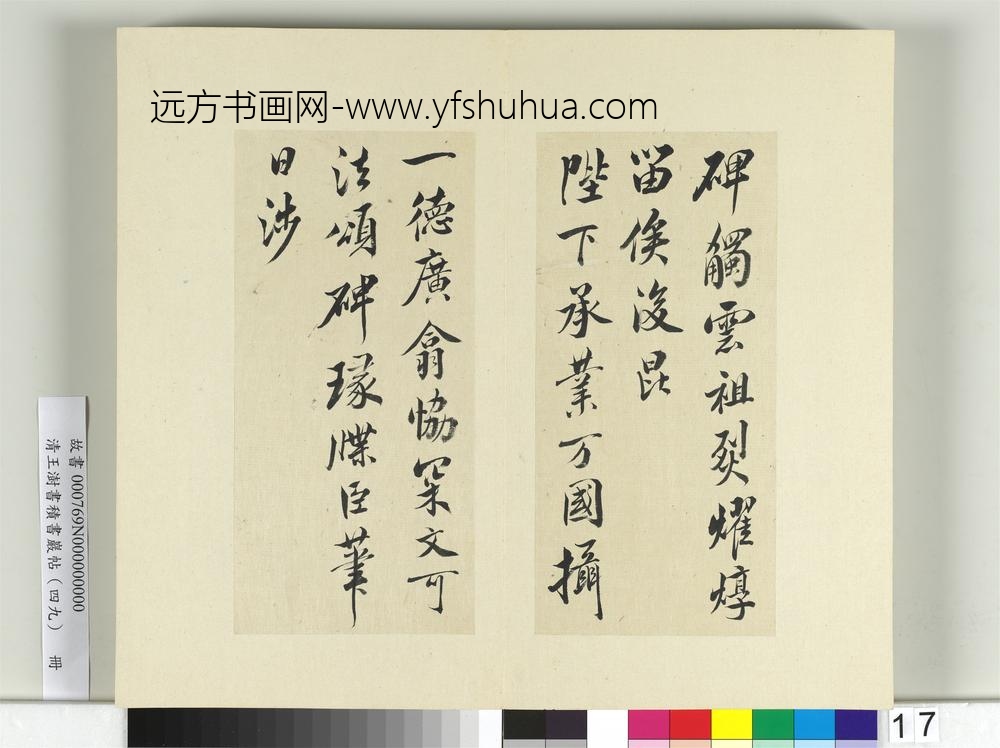 远方书画网-www.yfshuhua.com
碑觸雲祖烈耀焞
留侯後昆
陛下承業万國攝
一德廣翕協罙文可
法頌碑瑑牒臣筆
日涉
故書 000769N000000000
清王澍書積書巖帖（四九） 冊
17